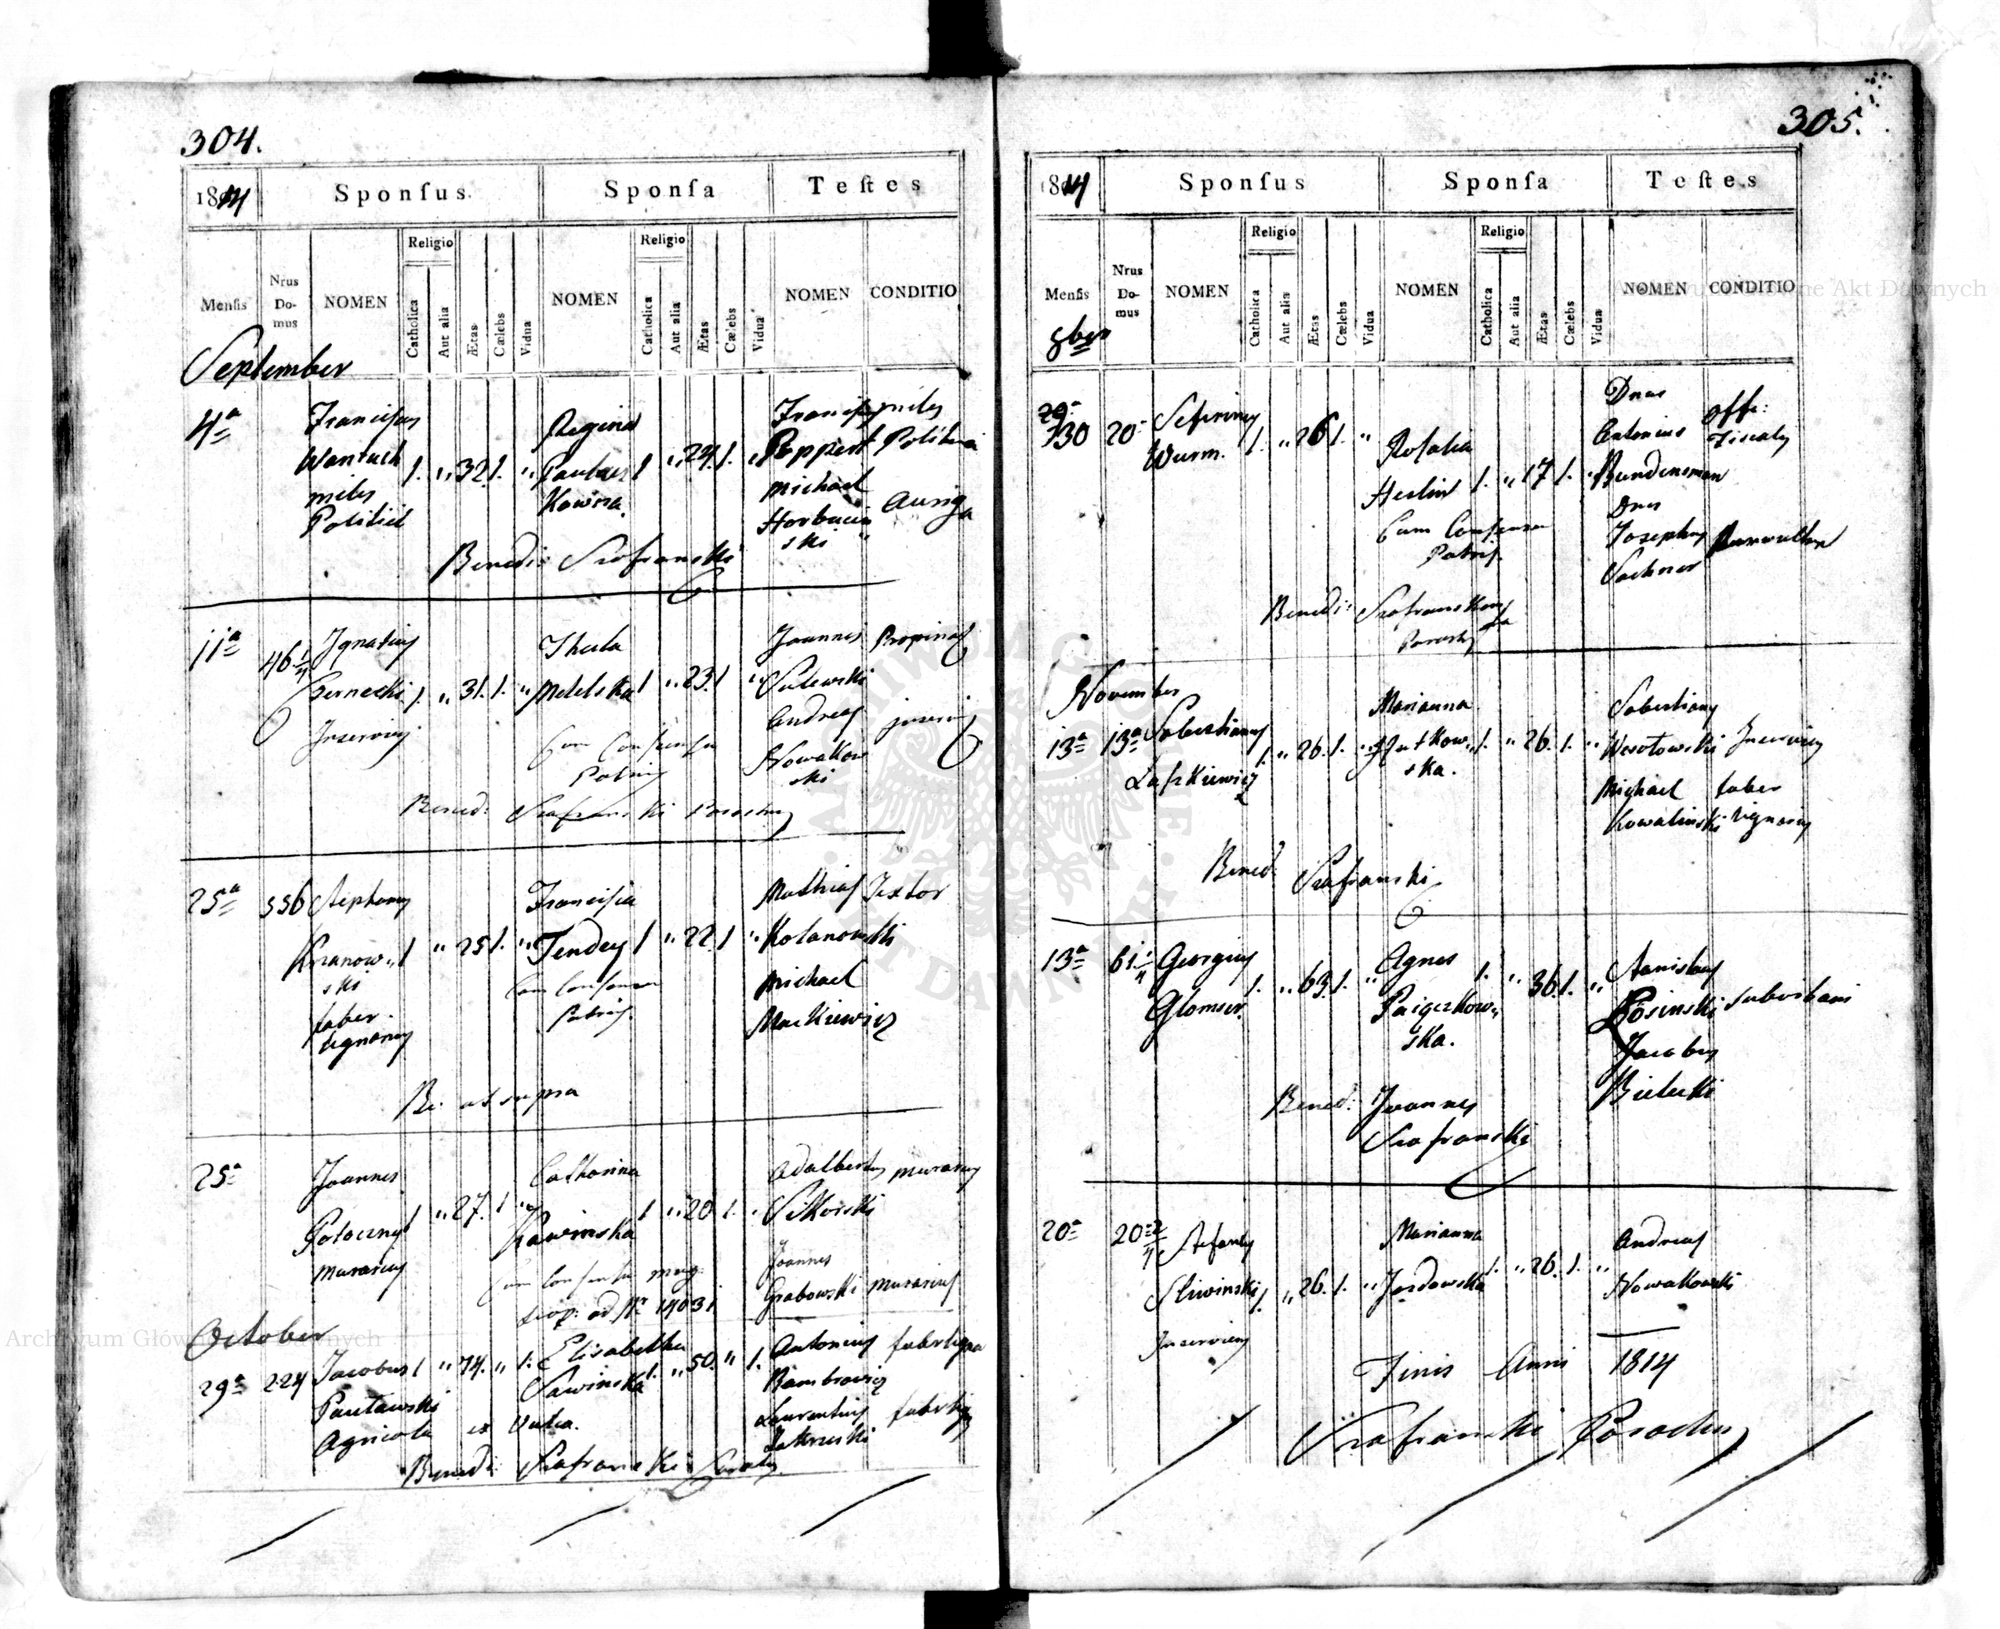 304.
1814
Sponsus.
Sponsa
Testes
Mensis
Nrus Do-mus
NOMEN
Religio
Catholica
Aut alia
Ætas
Cælebs
Vidua
NOMEN
Religio
Catholica
Aut alia
Ætas
Cælebs
Vidua
NOMEN
CONDITIO
September
4a
Franciscus
Wantuch
miles
Politiei
1. " 32 1. "
Regina
Kowna.
1 " 24. 1. "
Francis miles
Peppert Politiei
Michael
Horbacin
ski
Auriga
Bened: Szafranski
11a
46 1/4
Ignatius
Czernecki 1 " 31. 1. "
Inserviens
Thecla
1 " 23 1 "
Cum Consensu
Patris
Joannes Propinat
Sulewski
Andreas
Nowakow
ski
Bened: Szafranski Parochus
25a
556 Stephanus
Kranow-
ski
faber
lignarius
1 " 25 1. "
Francisca
Tendey 1 " 22. 1 "
Cum Consensu
Patris.
Mathias Textor
Kolanowski
Michael
Mackiewicz
Be. ut supra
25a
Joannes
Potoczny
murarius
1 " 27. 1 "
Catharina
Kawinska
1 " 20. 1. "
Cum Consensu mag.
ad No 14031
Adalbertus murarius
Sikorski
Joannes
Grabowski murarius
October
29a 224 Jacobus 1 " 74. " 1.
Pautawski
Agricola ex
Elisabetha
Sawinska 1. " 50. " 1.
Vidua.
Antonius
Bambrowicz
Laurentius
Zakrzeski
Bened: Szafranski
305.
1814
Sponsus
Sponsa
Testes
Mensis
Nrus Do-mus
NOMEN
Religio
Catholica
Aut alia
Ætas
Cælebs
Vidua
NOMEN
Religio
Catholica
Aut alia
Ætas
Cælebs
Vidua
NOMEN
CONDITIO
8ber
30 20
Seferinus
Wurm. 1. " 26 1. "
Rosalia
Herlin 1. " 17 1. "
Cum Consensu
Patris.
Dnus
Antonius
Bundensman
Dnus
Josephus
Sachner
Offi:
Fiscalis
Bened: Szafranski
Parochus
November
13a 13a Sebastianus
Laszkiewicz
1. " 26. 1. "
Marianna
Hutkow-
ska.
1. " 26. 1. "
Sebastianus
Wesołowski Inserviens
Michael faber
Kowalinski lignarius
Bened: Szafranski
13a 61 1/4 Georgius
Glomser.
1. " 63. 1. "
Agnes
Paiączkow-
ska.
1. " 36. 1. "
Stanislaus
Łosinski
Jacobus
Bielecki
Bened: Joannes
Szafranski
20a 20 2/4 Stefanus
Sliwinski 1. " 26. 1. "
Inserviens
Marianna
Jozdowska 1. " 26. 1. "
Andreas
Nowakowski
Finis Anni 1814
Szafranski Parochus
Archiwum Główne Akt Dawnych
Archiwum Główne Akt Dawnych
ARCHIWUM GŁÓWNE AKT DAWNYCH